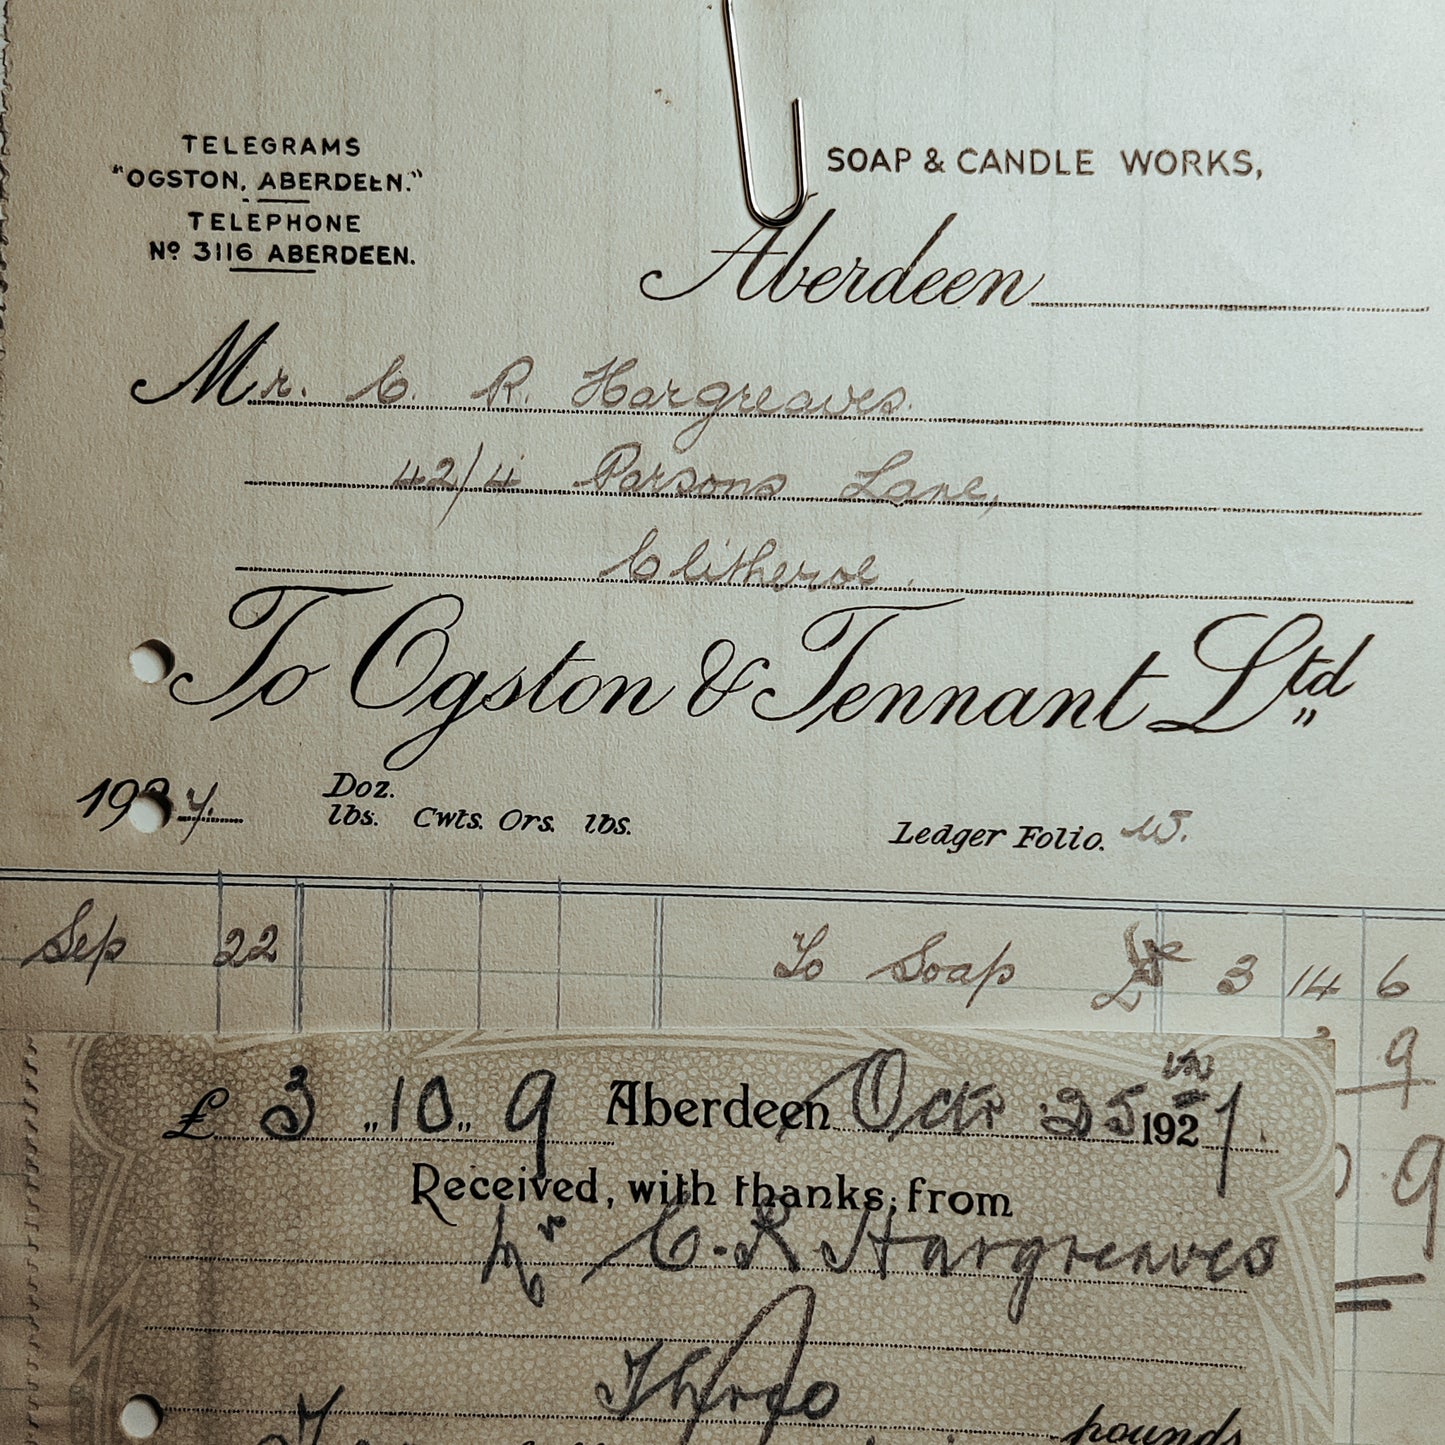 TELEGRAMS
"OGSTON, ABERDEEN."
TELEPHONE
Nº 3116 ABERDEEN.
SOAP & CANDLE WORKS,
Aberdeen
Mr. C. R. Hargreaves.
42/4 Parsons Lane,
Clitheroe.
To Ogston & Tennant Ltd
19
Doz.
lbs. Cwts. Qrs. lbs.
Ledger Folio. W.
Sep 22 To Soap £ 3 14 6
9
9
£ 3 " 10 " 9 Aberdeen Octr 25 1921.
Received, with thanks, from
Mr C. R Hargreaves
Three
pounds